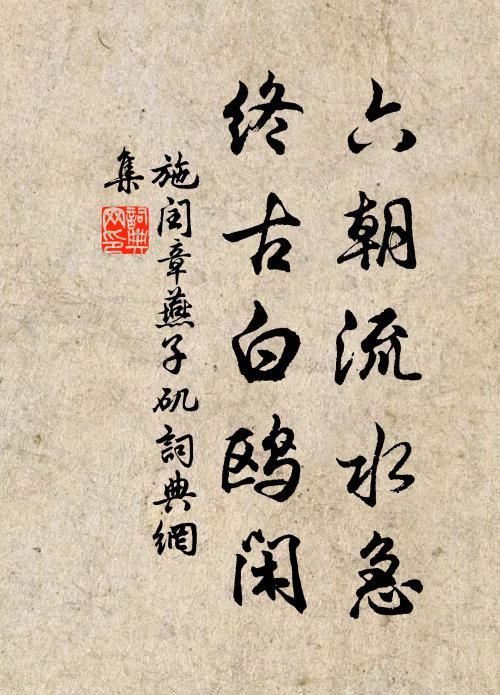 六朝流水急
终古白鸥闲
施闰章燕子矶詞典網
集
詞典
网印